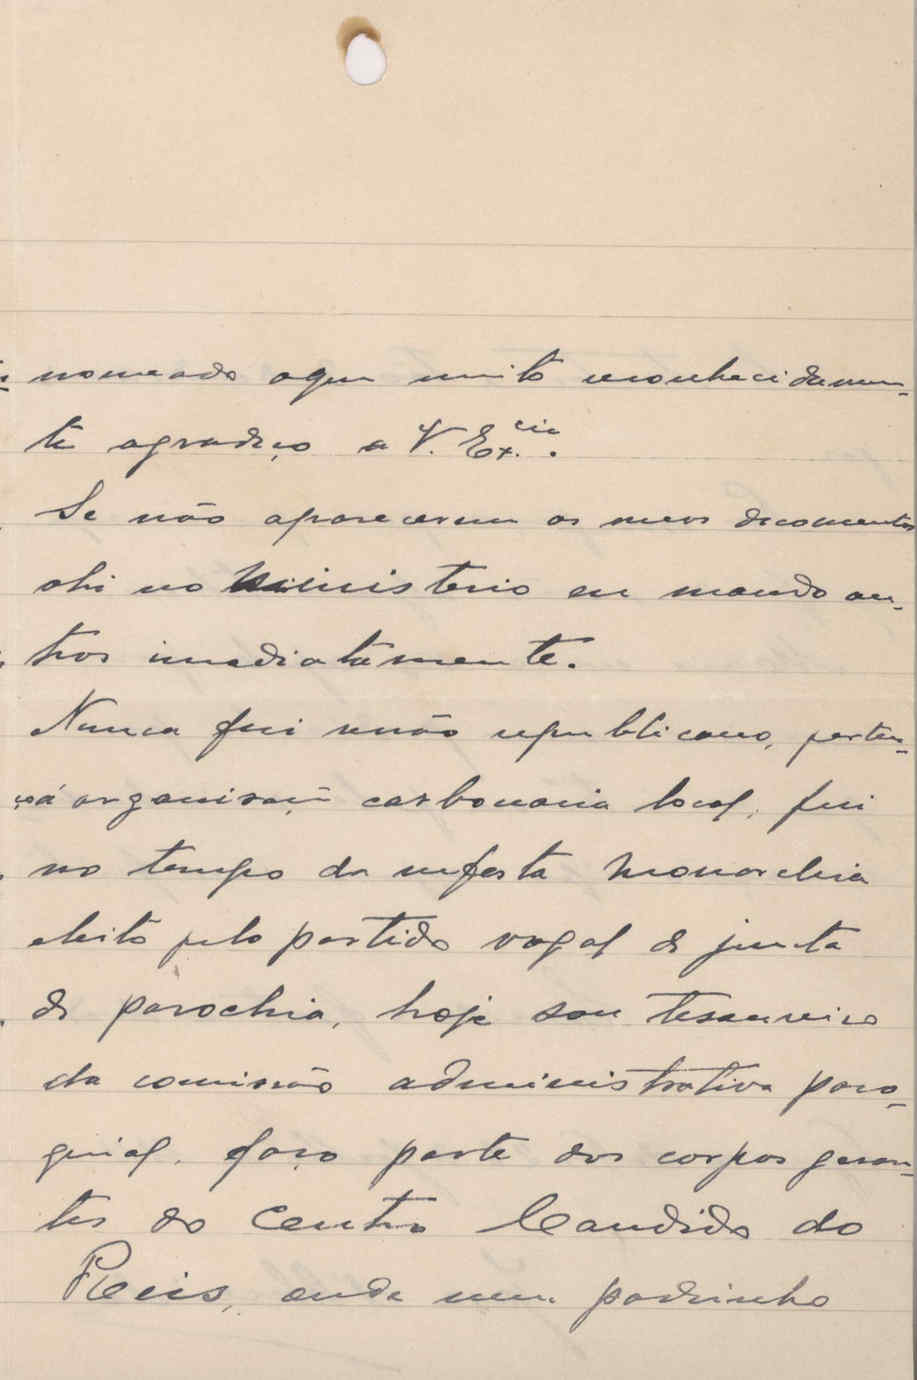 nomeado o que muito reconhecidamen-
te agradeço a V. Ex.cia.
Se não aparecerem os meus docomentos
ahi no Ministerio eu mando ou-
tros imediatamente.
Nunca fui senão republicano, perten-
ço á organisação carbonaria local, fui
no tempo da nefasta Monarchia
eleito pelo partido vogal da junta
de parochia, hoje sou tesoureiro
da comissão administrativa paro-
quial, faço parte dos corpos geren-
tes do Centro Candido do
Reis, onde meu padrinho